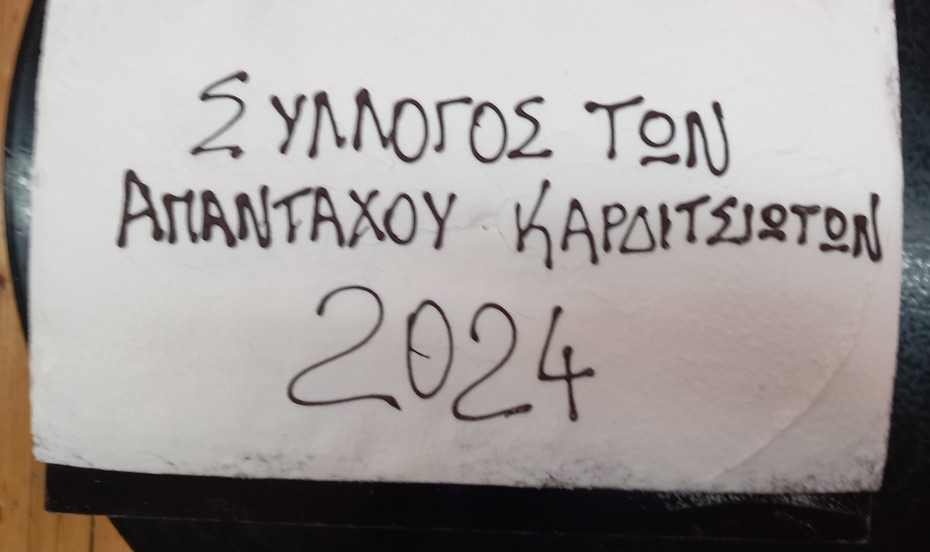 ΣΥΛΛΟΓΟΣ ΤΩΝ
ΑΠΑΝΤΑΧΟΥ ΚΑΡΔΙΤΣΙΩΤΩΝ
2024